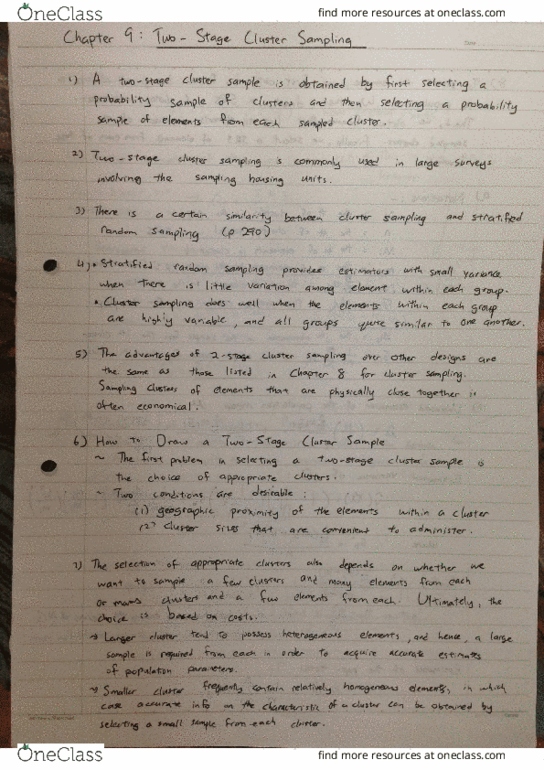 OneClass
find more resources at oneclass.com
Chapter 9: Two-Stage Cluster Sampling
1) A two-stage cluster sample is obtained by first selecting a
probability sample of clusters and then selecting a probability
sample of elements from each sampled cluster.
2) Two-stage cluster sampling is commonly used in large surveys
involving the sampling housing units.
3) There is a certain similarity between cluster sampling and stratified
random sampling (p 290)
4) • Stratified random sampling provides estimators with small variance
when there is little variation among element within each group.
• Cluster sampling does well when the elements within each group
are highly variable, and all groups quite similar to one another.
5) The advantages of 2-stage cluster sampling over other designs are
the same as those listed in Chapter 8 for cluster sampling.
Sampling clusters of elements that are physically close together is
often economical.
6) How to Draw a Two-Stage Cluster Sample
~ The first problem in selecting a two-stage cluster sample is
the choice of appropriate clusters.
~ Two conditions are desirable:
(1) geographic proximity of the elements within a cluster
(2) cluster sizes that are convenient to administer.
7) The selection of appropriate clusters also depends on whether we
want to sample a few clusters and many elements from each
or many clusters and a few elements from each. Ultimately, the
choice is based on costs.
→ Larger cluster tend to possess heterogeneous elements, and hence, a large
sample is required from each in order to acquire accurate estimates
of population parameters.
→ Smaller cluster frequently contain relatively homogeneous elements, in which
case accurate info on the characteristic of a cluster can be obtained by
selecting a small sample from each cluster.
OneClass
find more resources at oneclass.com